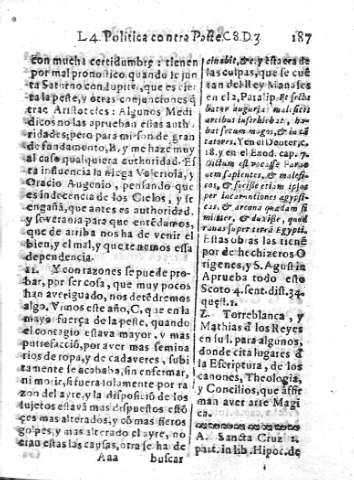 L 4. Politica contra Peste. C 8. D. 3. 187
con mucha certidumbre: tienen
por mal pronostico quando se jun
ta Saturno con Iupiter, que es cier
ta la peste, y otras conjunciones q̃
trae Aristoteles: Algunos Medi
dicos no las aprueban estas auth-
ridades; pero para mi son de gran
de fundamento, B. y me haze muy
al caso qualquiera authoridad. Es
ta influencia la niega Valeriola, y
Oracio Augenio, pensando que
es indecencia de los Cielos, y se
engaña, que antes es authoridad,
y severania para que entẽdamos,
que de arriba nos ha de venir el
bien, y el mal, y que tenemos essa
dependencia.
11. Y con razones se puede pro-
bar, por ser cosa, que muy pocos
han averiguado, nos detẽdremos
algo. Vimos este año, C, que en la
mayor fuerça de la peste, quando
el contagio estava mayor, y mas
putrefacciõ, por aver mas semina
rios de ropa, y de cadaveres, subi
tamente se acababa, sin enfermar,
ni morir, si fuera solamente por ra
zon del ayre, y la disposiciõ de los
sujetos estavã mas dispuestos estõ
ces mas alterados, y cõ mas fieros
golpes, y mas alterado el ayre, no
eran estas las causas, otra se ha de
Aaa buscar
cinabit, &c. y esta era de
las culpas, que se cuẽ
tan del Rey Manases
en el 2. Paralip. Et
auguria: maleficis
artibus inserbiebat, ha-
bat secum magos, & in cã
tatores. Y en el Deuter. c.
18. y en el Exod. cap. 7.
voca
sapientes, & malefi-
cos, & fecerũt etiam ipsi
per incantationes
& arcana
militer, &
ranas super terrã Egypti.
Estas obras las tiene
por de hechizeros O
rigenes, y S. Agustin
Aprueba todo esto
Scoto 4. sent. dist. 34.
quest. 1.
Z. Torreblanca, y
Mathias ã los Reyes
en su l. para algunos,
donde cita lugares ã
la Escriptura, de los
canones, Theologia,
y Concilios, que assir
man aver arte Magi
ca.
A. Sancta Cruz 1.
part. in lib. Hipoc. de